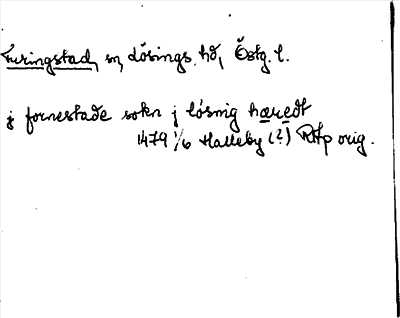 Furingstad, sn, Lösings hd, Östg. l.
j fornestade sokn j lósnig hæredt
1479 1/6 Halleby (?) RAp orig.